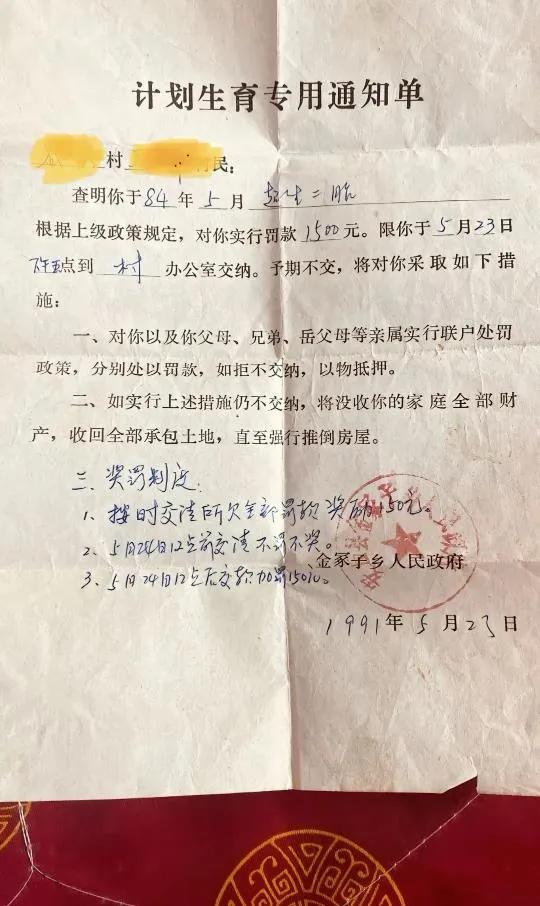 计划生育专用通知单
村 民：
查明你于84年5月超生二胎
根据上级政策规定，对你实行罚款1500元。限你于5月23日
下午五点到 村 办公室交纳。予期不交，将对你采取如下措
施：
一、对你以及你父母、兄弟、岳父母等亲属实行联户处罚
政策，分别处以罚款，如拒不交纳，以物抵押。
二、如实行上述措施仍不交纳，将没收你的家庭全部财
产，收回全部承包土地，直至强行推倒房屋。
三、奖罚制度：
1、按时交清所欠全部罚款奖励150元。
2、5月24日12点前交清不罚不奖。
金冢子乡人民政府
3、5月24日12点后交款加罚150元。
1991年5月23日